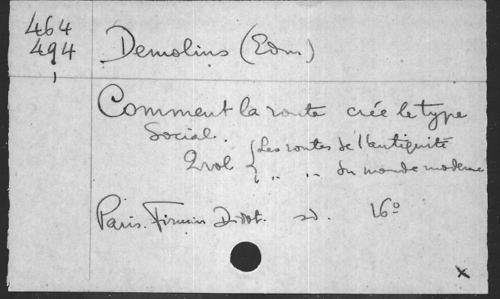 464
494
1
Demolins (Edm)
Comment la route crée le type
Social.
2 vol { Les routes de l'antiquité
" " du monde moderne
Paris. Firmin Didot. sd. 16º
x